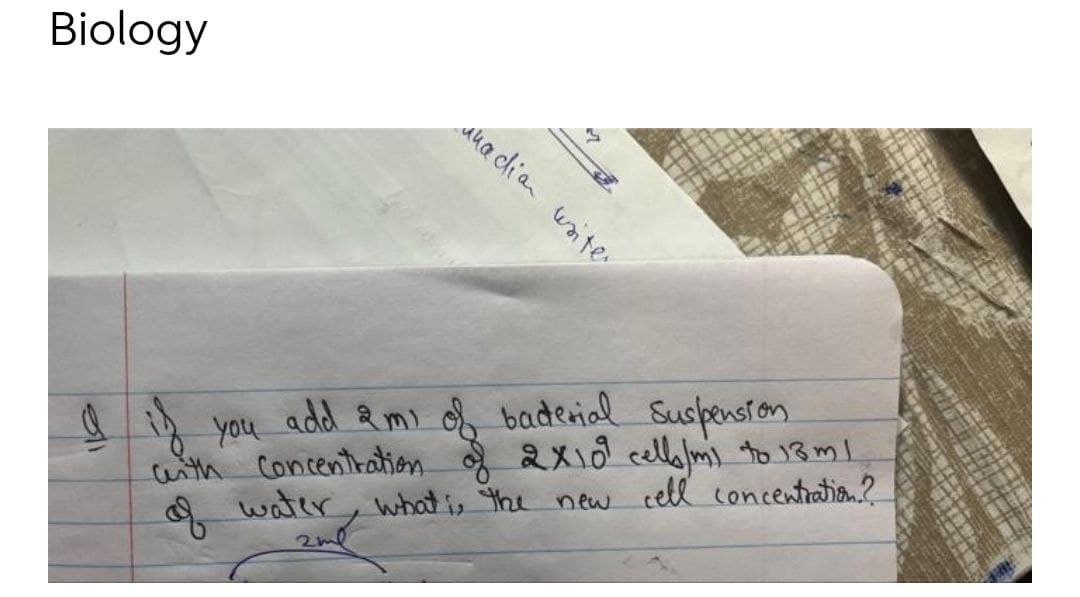 Biology
writer
Q if you add 2 ml of bacterial suspension
with concentration of 2x10⁹ cells/ml to 13ml
of water, what is the new cell concentration.?
2ml